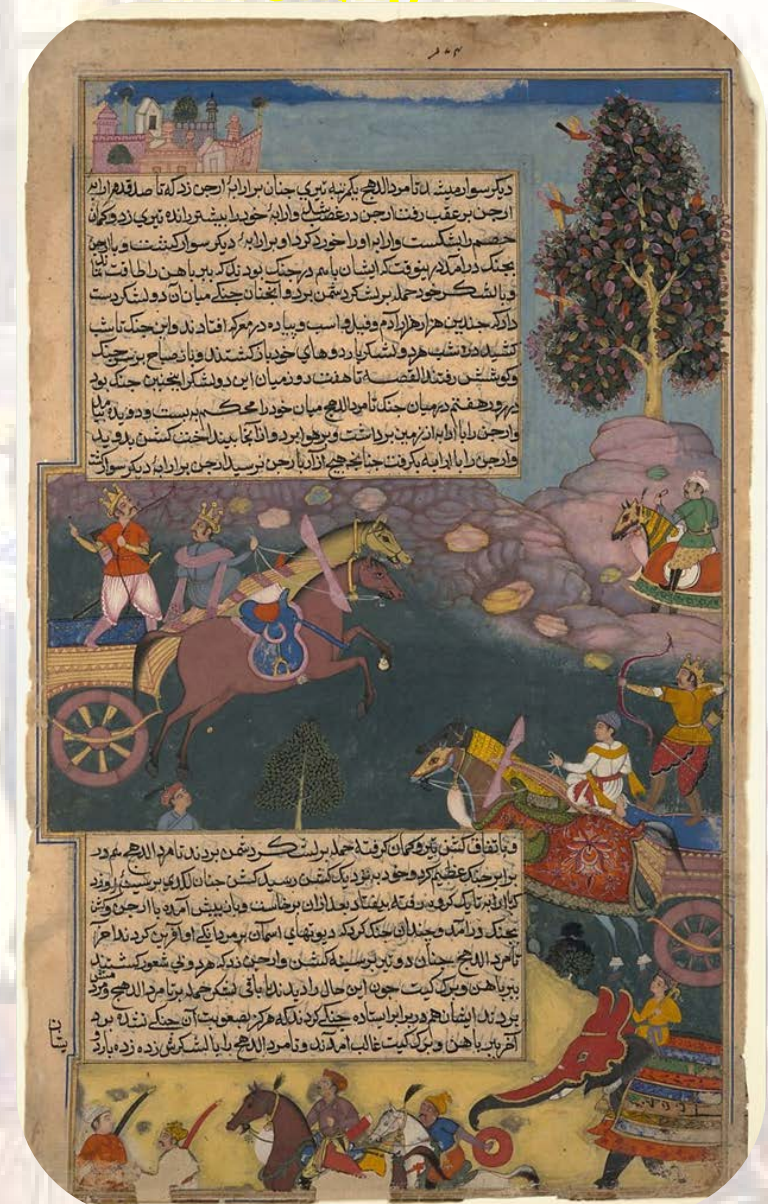 دیکر سوار میشد تا مردالدهج یکمرتبه تیری چنان بر ارابهٔ ارجن زد که تا صد قدم ارابه
ارجن بر عقب رفت ارجن در غضب شد و ارابهٔ خود را بیشتر رانده تیری زد و کمان
خصم را بشکست و ارابه او را خورد کرد او بر ارابهٔ دیکر سوار کشت و با ارجن
بجنک درآمد در ینوقت که ایشان باهم در جنک بودند که ببر باهن را طاقت نماند
و با لشکر خود حمله بر لشکر دشمن برد و آنچنان جنکی میان آن دو لشکر دست
داد که چندین هزار هزار آدم و فیل و اسب و پیاده در معرکه افتادند و این جنک تا شب
کشید در شب هر دو لشکر باردوهای خود باز کشتند و باز صباح بر سر جنک
و کوشش رفتند القصه تا هفت روز میان این دو لشکر اینچنین جنک بود
در روز هفتم در میان جنک تامردالدهج میان خود را محکم بر بست و دویده بیامد
و ارجن را با ارابه از زمین برداشت و بر هوا برد و از آنجا بینداخت کشن بدوید
و ارجن را با ارابه بکرفت چنانچه هیچ آزار بارجن نرسید ارجن بر ارابهٔ دیکر سوار کشت
و باتفاق کشن تیر و کمان کرفته حمله بر لشکر دشمن بردند تامردالدهج هم در
برابر جنک عظیم کرد و خود به نزدیک کشن رسید کشن چنان لکدی بر سینهٔ او زد
که ارابه تا یک کروه رفته بیفتاد بعد از آن برخاست و باز پیش آمده با ارجن و کشن
بجنک درآمد و چندان جنک کرد که دیوتهای آسمان بر مردانکی او آفرین کردند آخر
تامردالدهج چنان دو تیر بر سینهٔ کشن و ارجن زد که هر دو بی شعور کشتند
ببر باهن و برک کیت چون این حال را دیدند با باقی لشکر حمله بر تامردالدهج
بردند ایشان هم در برابر ایستاده جنکی کردند که هرکز بصعوبت آن جنکی نشده بود
آخر ببر باهن و برک کیت غالب آمدند و تامردالدهج را با لشکرش زده زده بازو